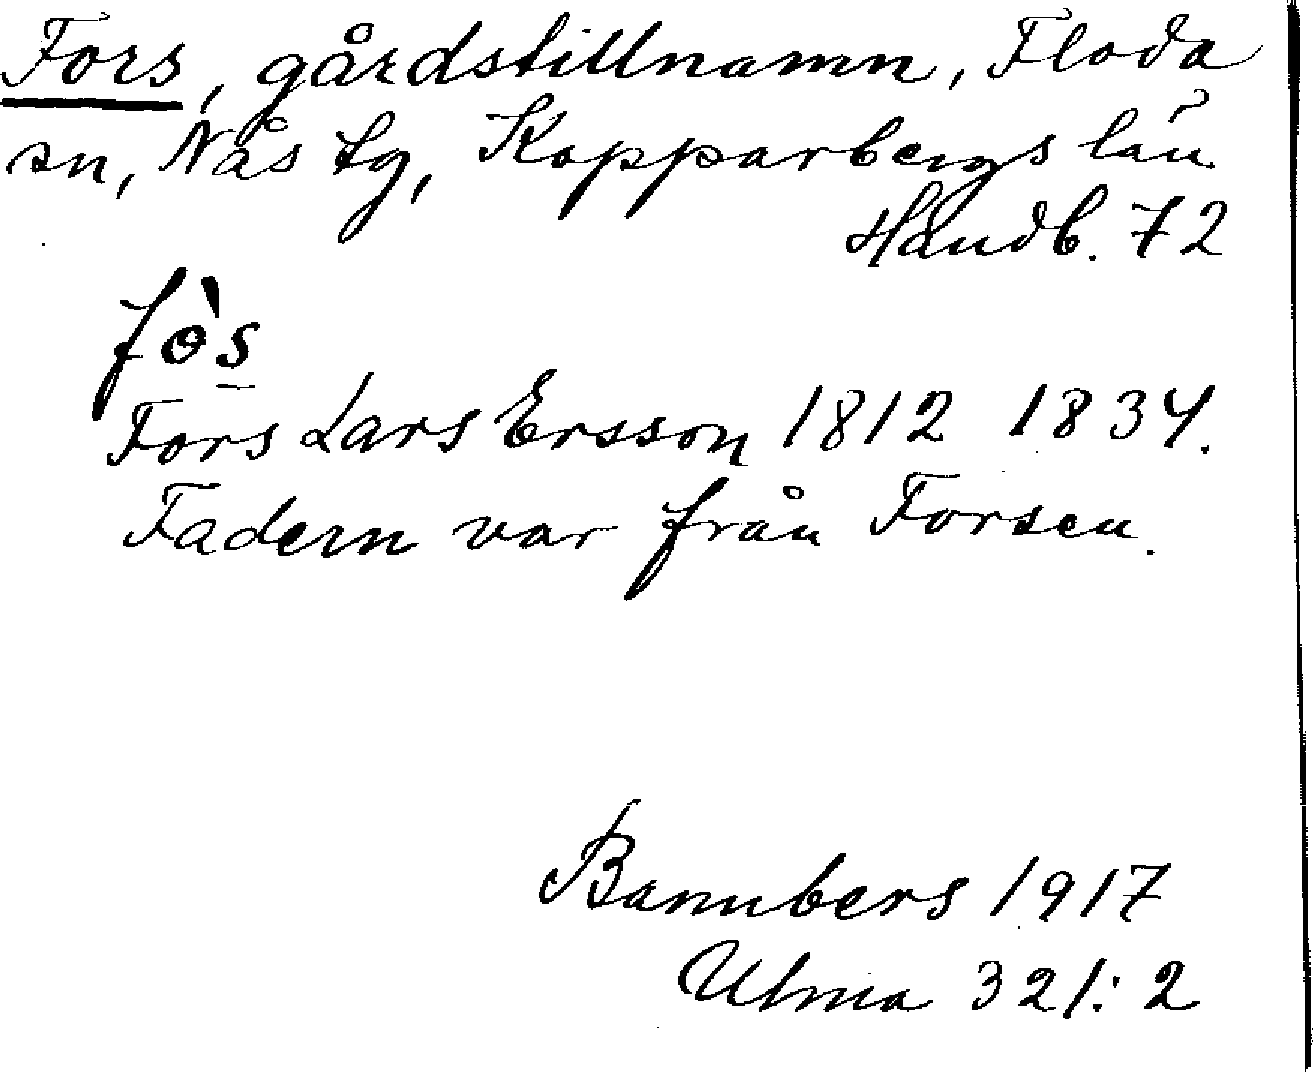 Fors, gårdstillnamn, Floda
sn, Nås tg, Kopparbergs län
Handb. 72
fo̊̀s̠
Fors Lars Ersson 1812 1834.
Fadern var från Forsen.
Bannbers 1917
Ulma 321:2